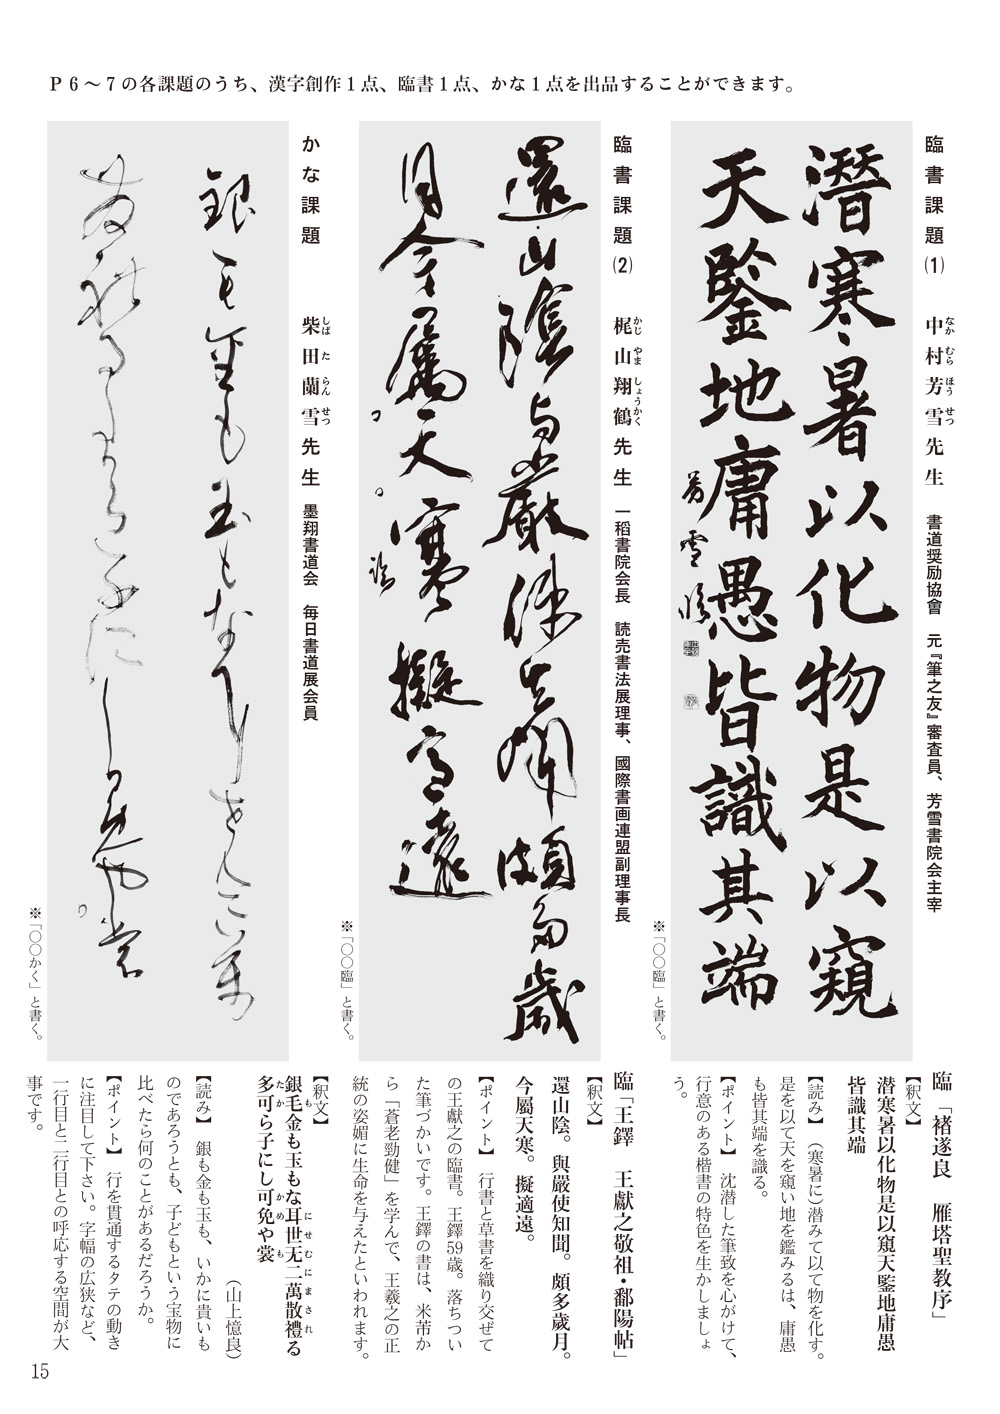 P6～7の各課題のうち、漢字創作1点、臨書1点、かな1点を出品することができます。
臨書課題(1)　中村芳雪先生　書道奨励協會　元『筆之友』審査員、芳雪書院会主宰
なかむらほうせつ
潛寒暑以化物是以窺
天鑒地庸愚皆識其端
芳雪臨
※「〇〇臨」と書く。
臨「褚遂良　雁塔聖教序」
【釈文】
潜寒暑以化物是以窺天鑒地庸愚
皆識其端
【読み】　（寒暑に）潜みて以て物を化す。
是を以て天を窺い地を鑑みるは、庸愚
も皆其端を識る。
【ポイント】　沈潜した筆致を心がけて、
行意のある楷書の特色を生かしましょ
う。
臨書課題(2)　梶山翔鶴先生　一稻書院会長　読売書法展理事、國際書画連盟副理事長
かじやましょうかく
還山陰與嚴使知聞頗多歲
月今屬天寒擬適遠
※「〇〇臨」と書く。
臨「王鐸　王獻之敬祖・鄱陽帖」
【釈文】
還山陰。與嚴使知聞。頗多歲月。
今屬天寒。擬適遠。
【ポイント】　行書と草書を織り交ぜて
の王獻之の臨書。王鐸59歳。落ちつい
た筆づかいです。王鐸の書は、米芾か
ら「蒼老勁健」を学んで、王羲之の正
統の姿媚に生命を与えたといわれます。
かな課題　柴田蘭雪先生　墨翔書道会　毎日書道展会員
しばたらんせつ
銀毛金も玉もな耳世无二萬
散禮る多可ら子にし可免や裳
※「〇〇かく」と書く。
【釈文】
銀毛金も玉もな耳世无二萬散禮る
も　にせむにまされ
多可ら子にし可免や裳
たか　かめ　も
（山上憶良）
【読み】　銀も金も玉も、いかに貴いも
のであろうとも、子どもという宝物に
比べたら何のことがあるだろうか。
【ポイント】　行を貫通するタテの動き
に注目して下さい。字幅の広狭など、
一行目と二行目との呼応する空間が大
事です。
15